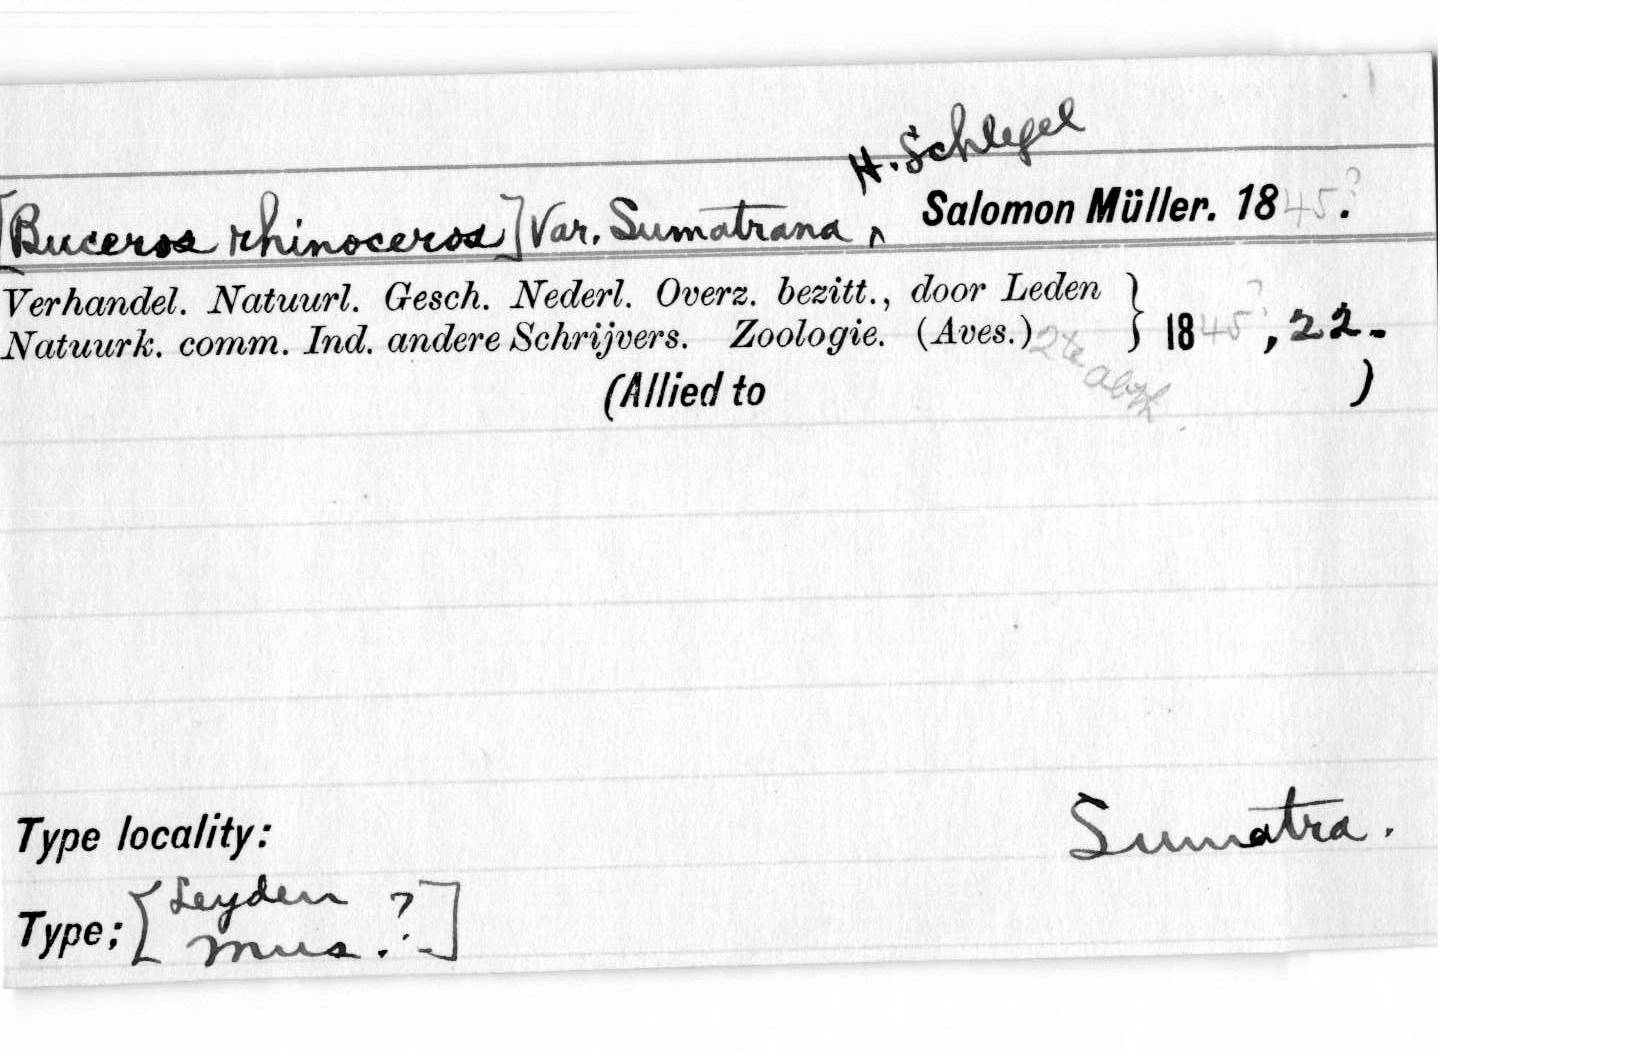 H. Schlegel
[Buceros rhinoceros] Var. Sumatrana ^ Salomon Müller. 1845?.
Verhandel. Natuurl. Gesch. Nederl. Overz. bezitt., door Leden } 1845?, 22-
Natuurk. comm. Ind. andere Schrijvers. Zoologie. (Aves.) 2te
(Allied to )
Type locality: Sumatra.
Type; [Leyden
Mus. ?]